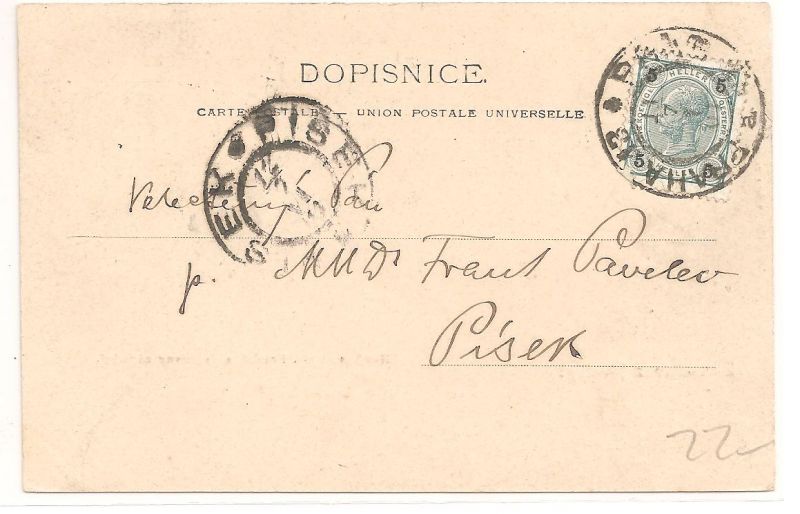 DOPISNICE.
CARTE POSTALE — UNION POSTALE UNIVERSELLE
PISEK PISEK
PRAHA
5 HELLER 5
5 5
Pan
p. MUDr Frant Pavelec
Písek
22